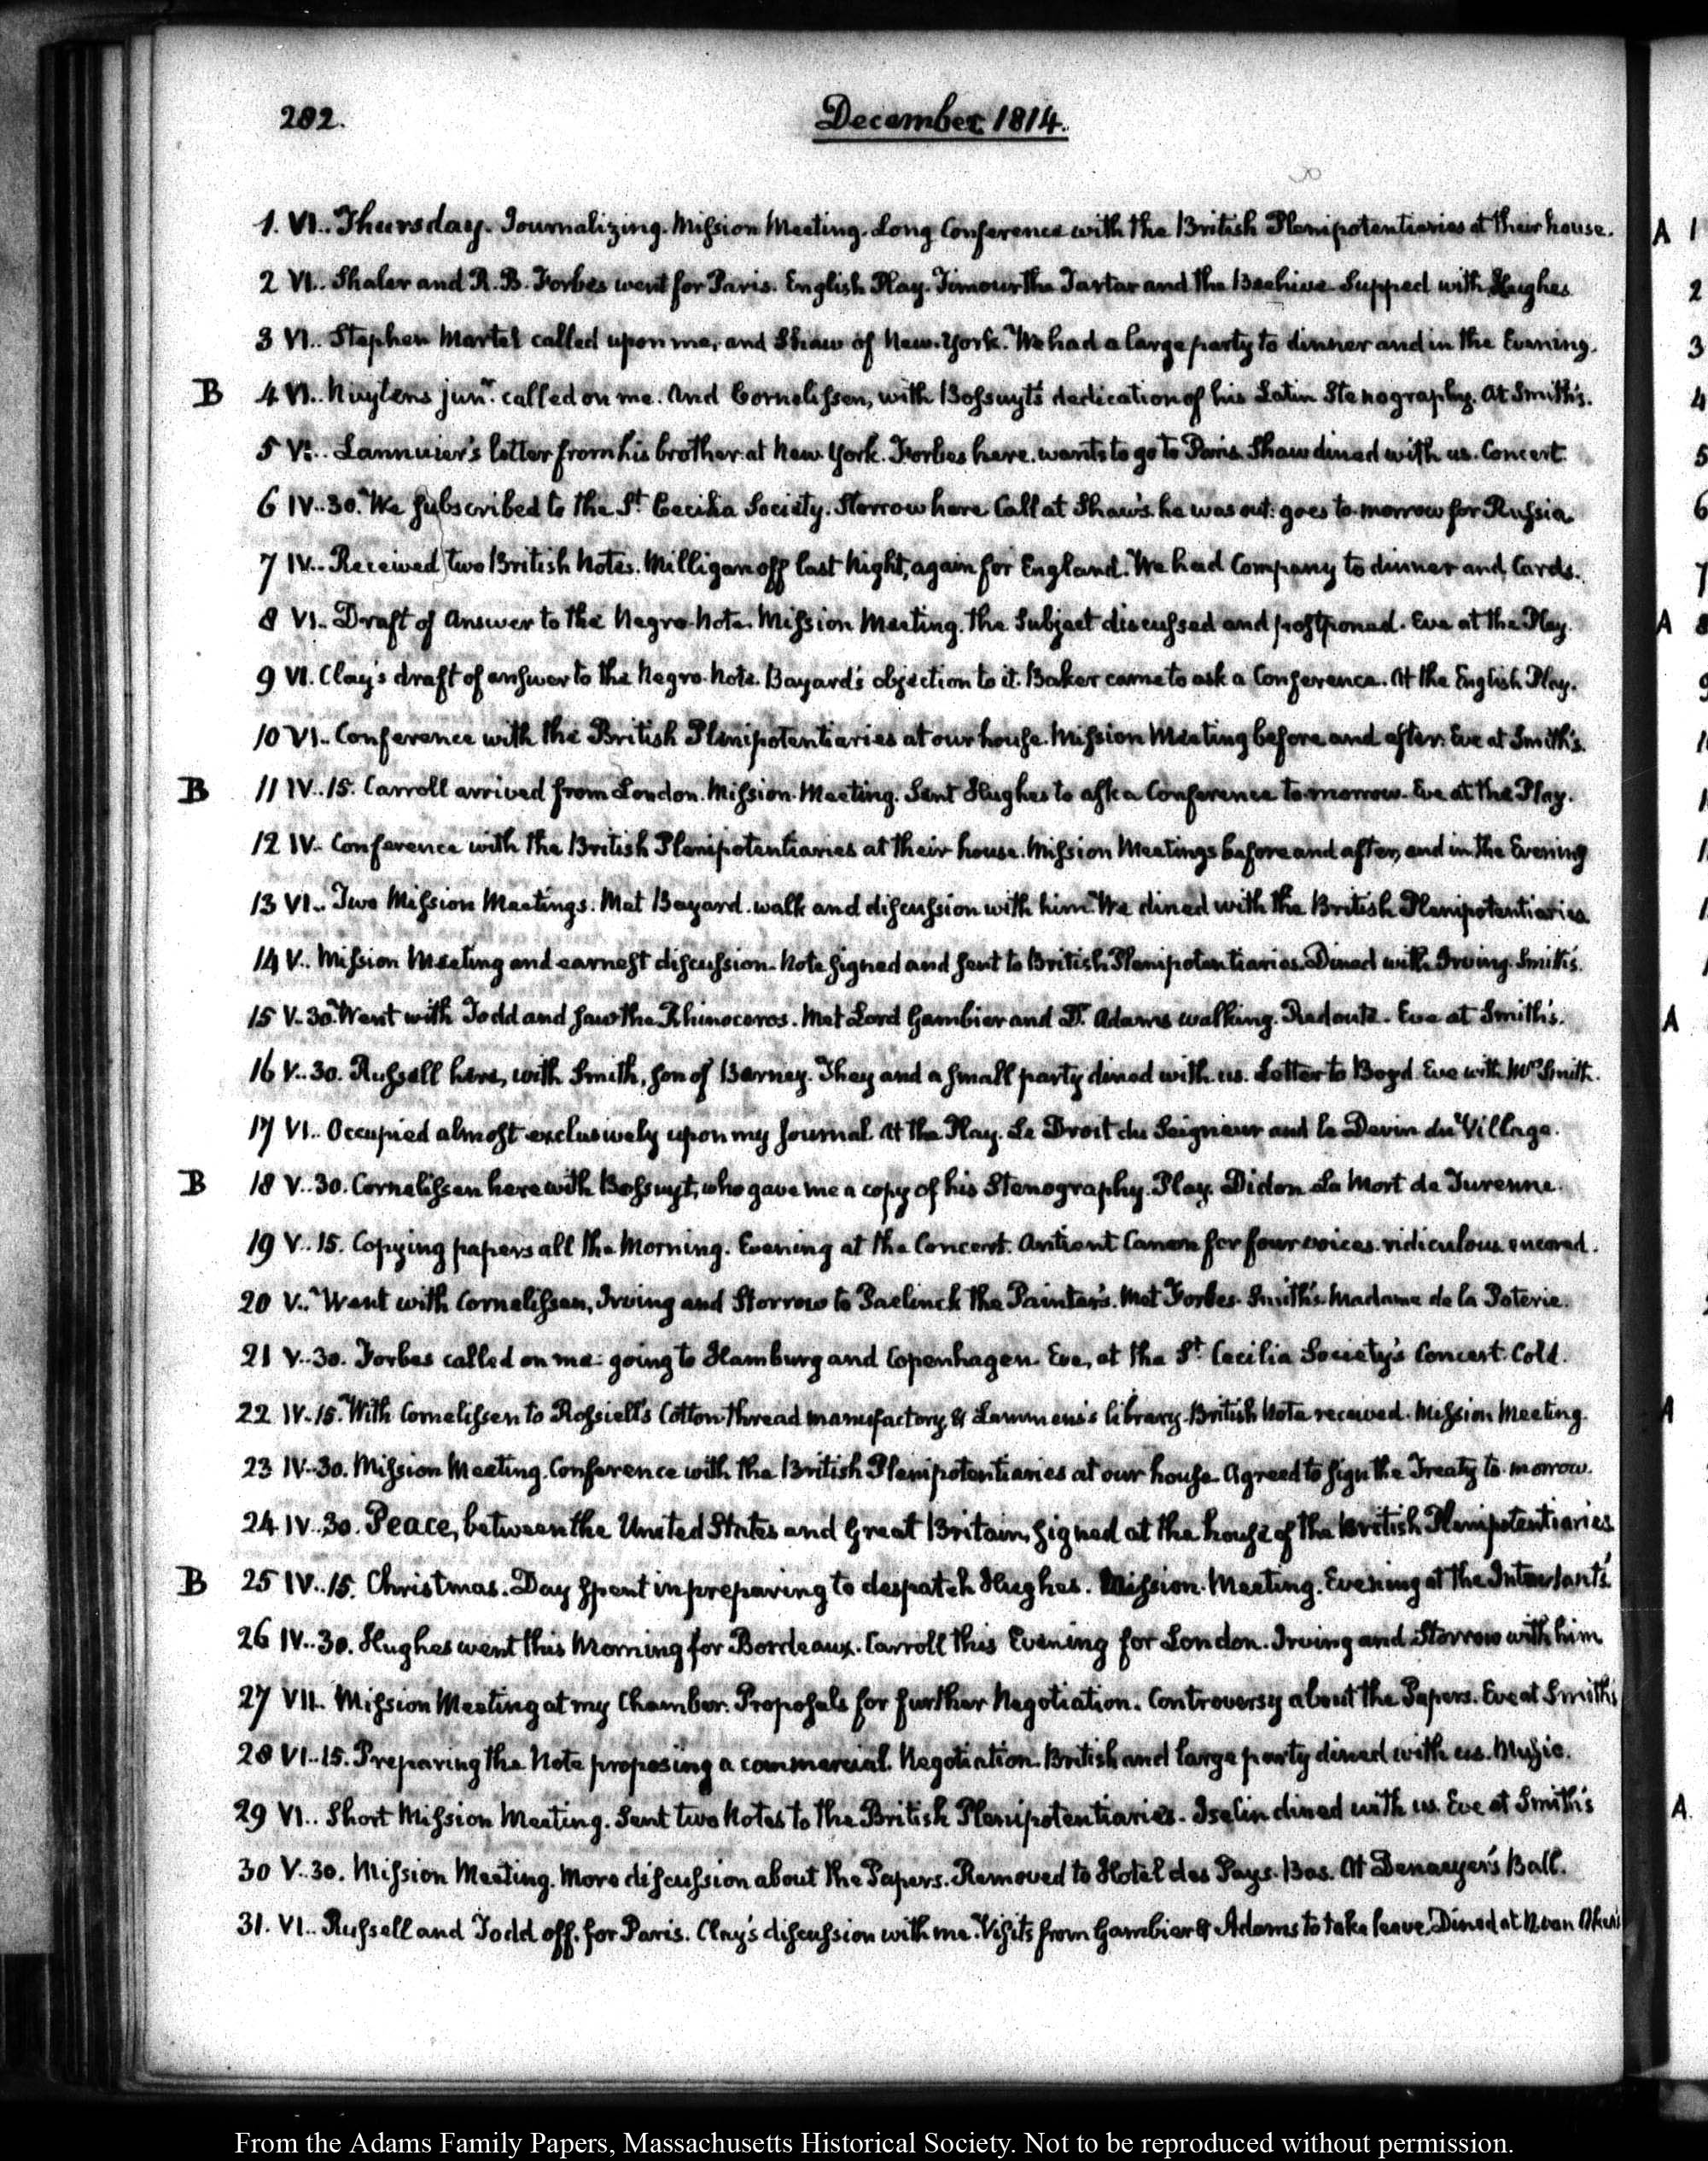 282.
December 1814.
1. VI.. Thursday. Journalizing. Mission Meeting. Long Conference with the British Plenipotentiaries at their house.
2 VI.. Shaler and R. B. Forbes went for Paris. English Play. Timour the Tartar and the Beehive. Supped with Hughes
3 VI.. Stephen Martel called upon me, and Shaw of New-York. We had a large party to dinner and in the Evening.
B 4 VI.. Nuytens junr. called on me. And Cornelissen, with Bossuyt's dedication of his Latin Stenography. At Smith's.
5 V:.. Lannuier's letter from his brother at New York. Forbes here. wants to go to Paris. Shaw dined with us. Concert.
6 IV..30. We subscribed to the St. Cecilia Society. Storrow here. Call at Shaw's. he was out: goes to-morrow for Russia.
7 IV.. Received two British Notes. Milligan off last Night, again for England. We had Company to dinner and Cards.
8 VI.. Draft of Answer to the Negro-Note. Mission Meeting. The Subject discussed and postponed. Eve at the Play.
9 VI. Clay's draft of answer to the Negro-Note. Bayard's objection to it. Baker came to ask a Conference. At the English Play.
10 VI.. Conference with the British Plenipotentiaries at our house. Mission Meeting before and after. Eve at Smith's.
B 11 IV..15. Carroll arrived from London. Mission-Meeting. Sent Hughes to ask a Conference to-morrow. Eve at the Play.
12 IV.. Conference with the British Plenipotentiaries at their house. Mission Meetings before and after, and in the Evening
13 VI.. Two Mission Meetings. Met Bayard. walk and discussion with him. We dined with the British Plenipotentiaries.
14 V.. Mission Meeting and earnest discussion. Note signed and sent to British Plenipotentiaries. Dined with Irving. Smith's.
15 V..30. Went with Todd and saw the Rhinoceros. Met Lord Gambier and Dr. Adams walking. Redoute. Eve at Smith's.
16 V..30. Russell here, with Smith, son of Barney. They and a small party dined with us. Letter to Boyd. Eve with Mrs Smith.
17 VI.. Occupied almost exclusively upon my Journal. At the Play. Le Droit du Seigneur and le Devin du Village.
B 18 V..30. Cornelissen here with Bossuyt, who gave me a copy of his Stenography. Play. Didon La Mort de Turenne.
19 V..15. Copying papers all the Morning. Evening at the Concert. Antient Canon for four voices. ridiculous encored.
20 V.. Went with Cornelissen, Irving and Storrow to Paelinck the Painter's. Met Forbes. Smith's. Madame de la Poterie.
21 V..30. Forbes called on me: going to Hamburg and Copenhagen. Eve, at the St. Cecilia Society's Concert. Cold.
22 IV..15. With Cornelissen to Rossiell's Cotton-thread manufactory, & Lammens's library. British Note received. Mission Meeting.
23 IV..30. Mission Meeting. Conference with the British Plenipotentiaries at our house. Agreed to sign the Treaty to-morrow.
24 IV..30. Peace, between the United States and Great Britain, signed at the house of the British Plenipotentiaries
B 25 IV..15. Christmas. Day spent in preparing to despatch Hughes. Mission-Meeting. Evening at the Intendant's.
26 IV..30. Hughes went this Morning for Bordeaux. Carroll this Evening for London. Irving and Storrow with him
27 VII. Mission Meeting at my Chamber. Proposals for further Negotiation. Controversy about the Papers. Eve at Smith's
28 VI..15. Preparing the Note proposing a commercial Negotiation. British and large party dined with us. Music.
29 VI.. Short Mission Meeting. Sent two Notes to the British Plenipotentiaries. Iselin dined with us. Eve at Smith's
30 V..30. Mission Meeting. More discussion about the Papers. Removed to Hotel des Pays-Bas. At Denaeyer's Ball.
31. VI.. Russell and Todd off for Paris. Clay's discussion with me. Visits from Gambier & Adams to take leave. Dined at
From the Adams Family Papers, Massachusetts Historical Society. Not to be reproduced without permission.